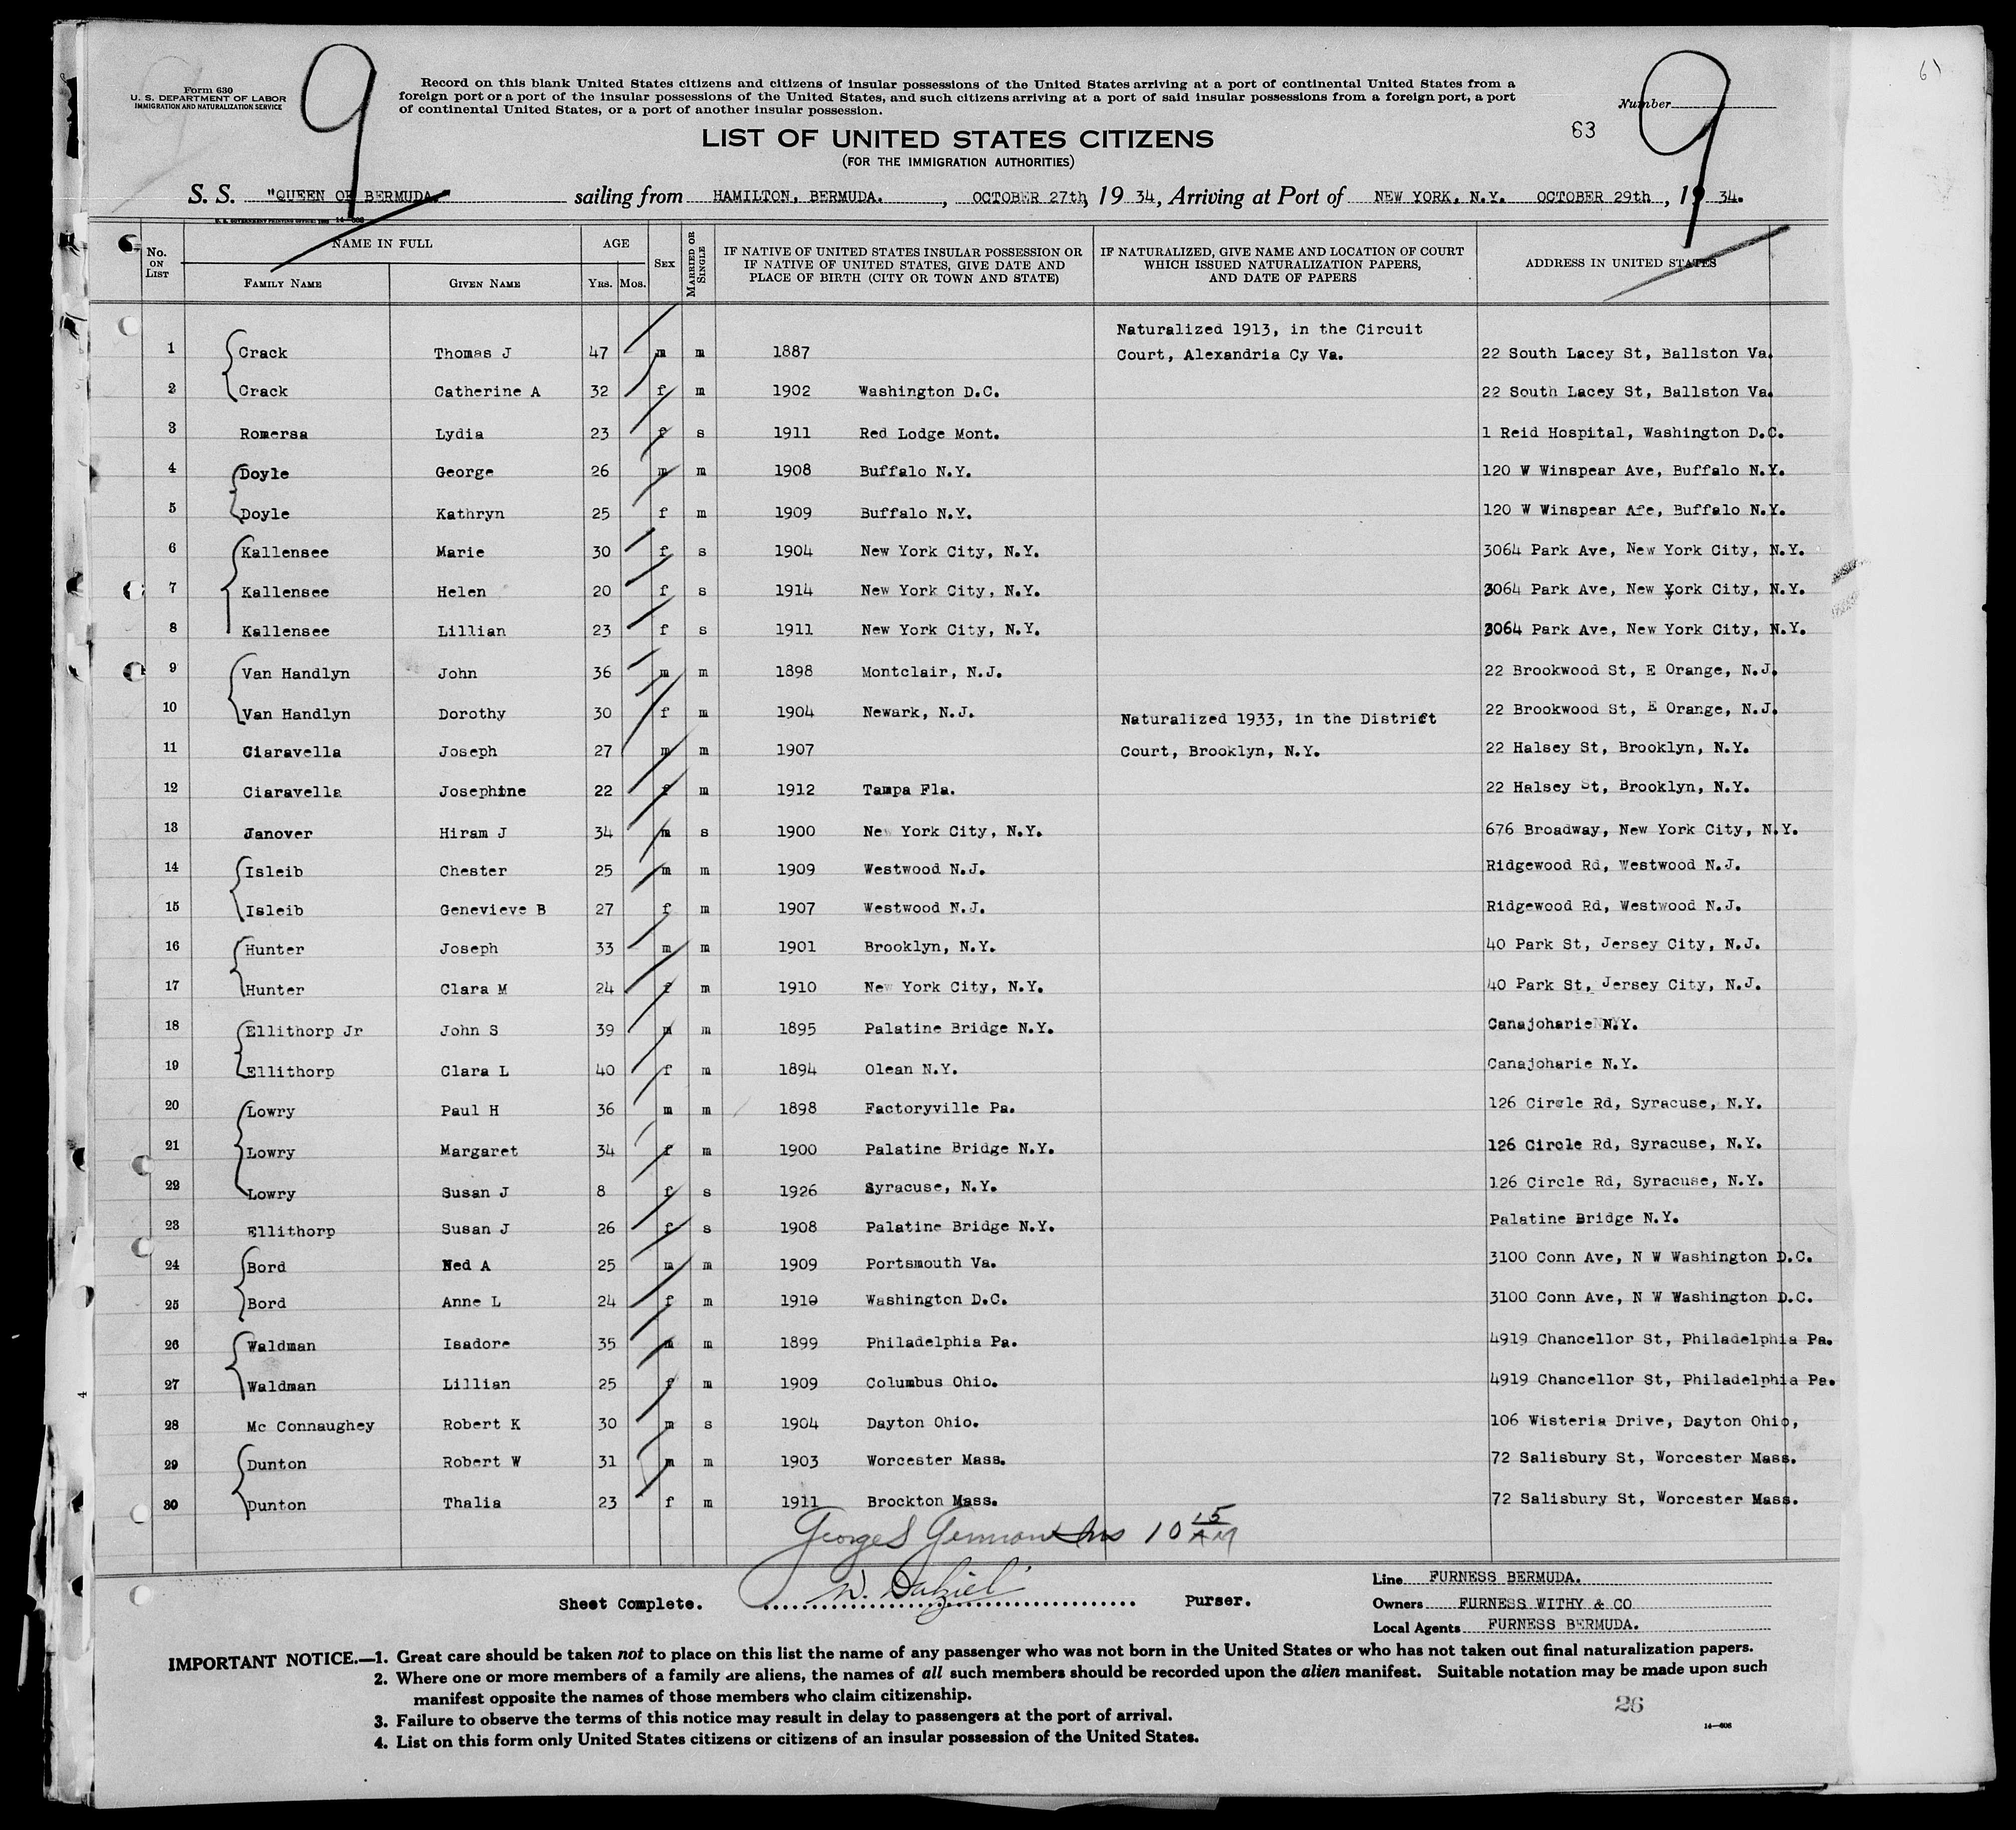 9
9
61
Form 630
U. S. DEPARTMENT OF LABOR
IMMIGRATION AND NATURALIZATION SERVICE
Record on this blank United States citizens and citizens of insular possessions of the United States arriving at a port of continental United States from a
foreign port or a port of the insular possessions of the United States, and such citizens arriving at a port of said insular possessions from a foreign port, a port
of continental United States, or a port of another insular possession.
Number
63
LIST OF UNITED STATES CITIZENS
(FOR THE IMMIGRATION AUTHORITIES)
S. S. "QUEEN OF BERMUDA." sailing from HAMILTON, BERMUDA. , OCTOBER 27th, 19 34, Arriving at Port of NEW YORK, N.Y. OCTOBER 29th , 19 34.
No. ON LIST NAME IN FULL FAMILY NAME GIVEN NAME AGE YRS. MOS. SEX MARRIED OR SINGLE IF NATIVE OF UNITED STATES INSULAR POSSESSION OR IF NATIVE OF UNITED STATES, GIVE DATE AND PLACE OF BIRTH (CITY OR TOWN AND STATE) IF NATURALIZED, GIVE NAME AND LOCATION OF COURT WHICH ISSUED NATURALIZATION PAPERS, AND DATE OF PAPERS ADDRESS IN UNITED STATES
1 Crack Thomas J 47 m m 1887 Naturalized 1913, in the Circuit Court, Alexandria Cy Va. 22 South Lacey St, Ballston Va.
2 Crack Catherine A 32 f m 1902 Washington D.C. 22 South Lacey St, Ballston Va.
3 Romersa Lydia 23 f s 1911 Red Lodge Mont. 1 Reid Hospital, Washington D.C.
4 Doyle George 26 m m 1908 Buffalo N.Y. 120 W Winspear Ave, Buffalo N.Y.
5 Doyle Kathryn 25 f m 1909 Buffalo N.Y. 120 W Winspear Afe, Buffalo N.Y.
6 Kallensee Marie 30 f s 1904 New York City, N.Y. 3064 Park Ave, New York City, N.Y.
7 Kallensee Helen 20 f s 1914 New York City, N.Y. 3064 Park Ave, New York City, N.Y.
8 Kallensee Lillian 23 f s 1911 New York City, N.Y. 3064 Park Ave, New York City, N.Y.
9 Van Handlyn John 36 m m 1898 Montclair, N.J. 22 Brookwood St, E Orange, N.J.
10 Van Handlyn Dorothy 30 f m 1904 Newark, N.J. 22 Brookwood St, E Orange, N.J.
11 Ciaravella Joseph 27 m m 1907 Naturalized 1933, in the District Court, Brooklyn, N.Y. 22 Halsey St, Brooklyn, N.Y.
12 Ciaravella Josephine 22 f m 1912 Tampa Fla. 22 Halsey St, Brooklyn, N.Y.
13 Janover Hiram J 34 m s 1900 New York City, N.Y. 676 Broadway, New York City, N.Y.
14 Isleib Chester 25 m m 1909 Westwood N.J. Ridgewood Rd, Westwood N.J.
15 Isleib Genevieve B 27 f m 1907 Westwood N.J. Ridgewood Rd, Westwood N.J.
16 Hunter Joseph 33 m m 1901 Brooklyn, N.Y. 40 Park St, Jersey City, N.J.
17 Hunter Clara M 24 f m 1910 New York City, N.Y. 40 Park St, Jersey City, N.J.
18 Ellithorp Jr John S 39 m m 1895 Palatine Bridge N.Y. Canajoharie N.Y.
19 Ellithorp Clara L 40 f m 1894 Olean N.Y. Canajoharie N.Y.
20 Lowry Paul H 36 m m 1898 Factoryville Pa. 126 Circle Rd, Syracuse, N.Y.
21 Lowry Margaret 34 f m 1900 Palatine Bridge N.Y. 126 Circle Rd, Syracuse, N.Y.
22 Lowry Susan J 8 f s 1926 Syracuse, N.Y. 126 Circle Rd, Syracuse, N.Y.
23 Ellithorp Susan J 26 f s 1908 Palatine Bridge N.Y. Palatine Bridge N.Y.
24 Bord Ned A 25 m m 1909 Portsmouth Va. 3100 Conn Ave, N W Washington D.C.
25 Bord Anne L 24 f m 1910 Washington D.C. 3100 Conn Ave, N W Washington D.C.
26 Waldman Isadore 35 m m 1899 Philadelphia Pa. 4919 Chancellor St, Philadelphia Pa.
27 Waldman Lillian 25 f m 1909 Columbus Ohio. 4919 Chancellor St, Philadelphia Pa.
28 Mc Connaughey Robert K 30 m s 1904 Dayton Ohio. 106 Wisteria Drive, Dayton Ohio,
29 Dunton Robert W 31 m m 1903 Worcester Mass. 72 Salisbury St, Worcester Mass.
30 Dunton Thalia 23 f m 1911 Brockton Mass. 72 Salisbury St, Worcester Mass.
George S 10 15 AM
Sheet Complete. W. Dalziel Purser.
Line FURNESS BERMUDA.
Owners FURNESS WITHY & CO
Local Agents FURNESS BERMUDA.
IMPORTANT NOTICE.—1. Great care should be taken not to place on this list the name of any passenger who was not born in the United States or who has not taken out final naturalization papers.
2. Where one or more members of a family are aliens, the names of all such members should be recorded upon the alien manifest. Suitable notation may be made upon such
manifest opposite the names of those members who claim citizenship.
3. Failure to observe the terms of this notice may result in delay to passengers at the port of arrival.
4. List on this form only United States citizens or citizens of an insular possession of the United States.
26
14—608